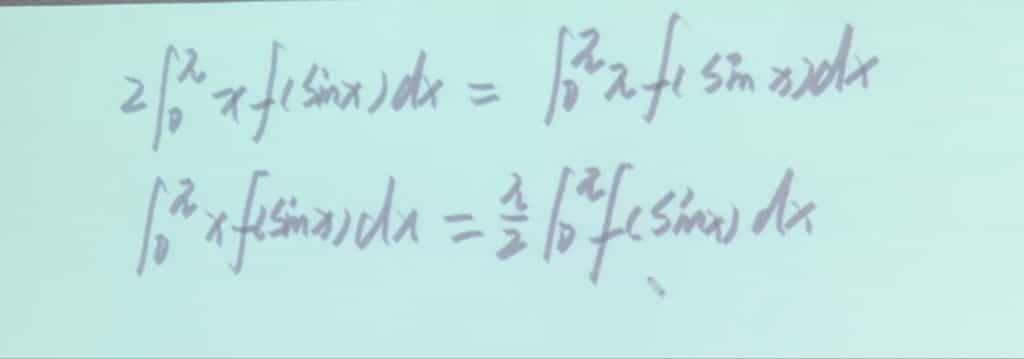 2∫₀^π x f(sinx) dx = ∫₀^π π f(sin x) dx
∫₀^π x f(sinx) dx = π/2 ∫₀^π f(sinx) dx